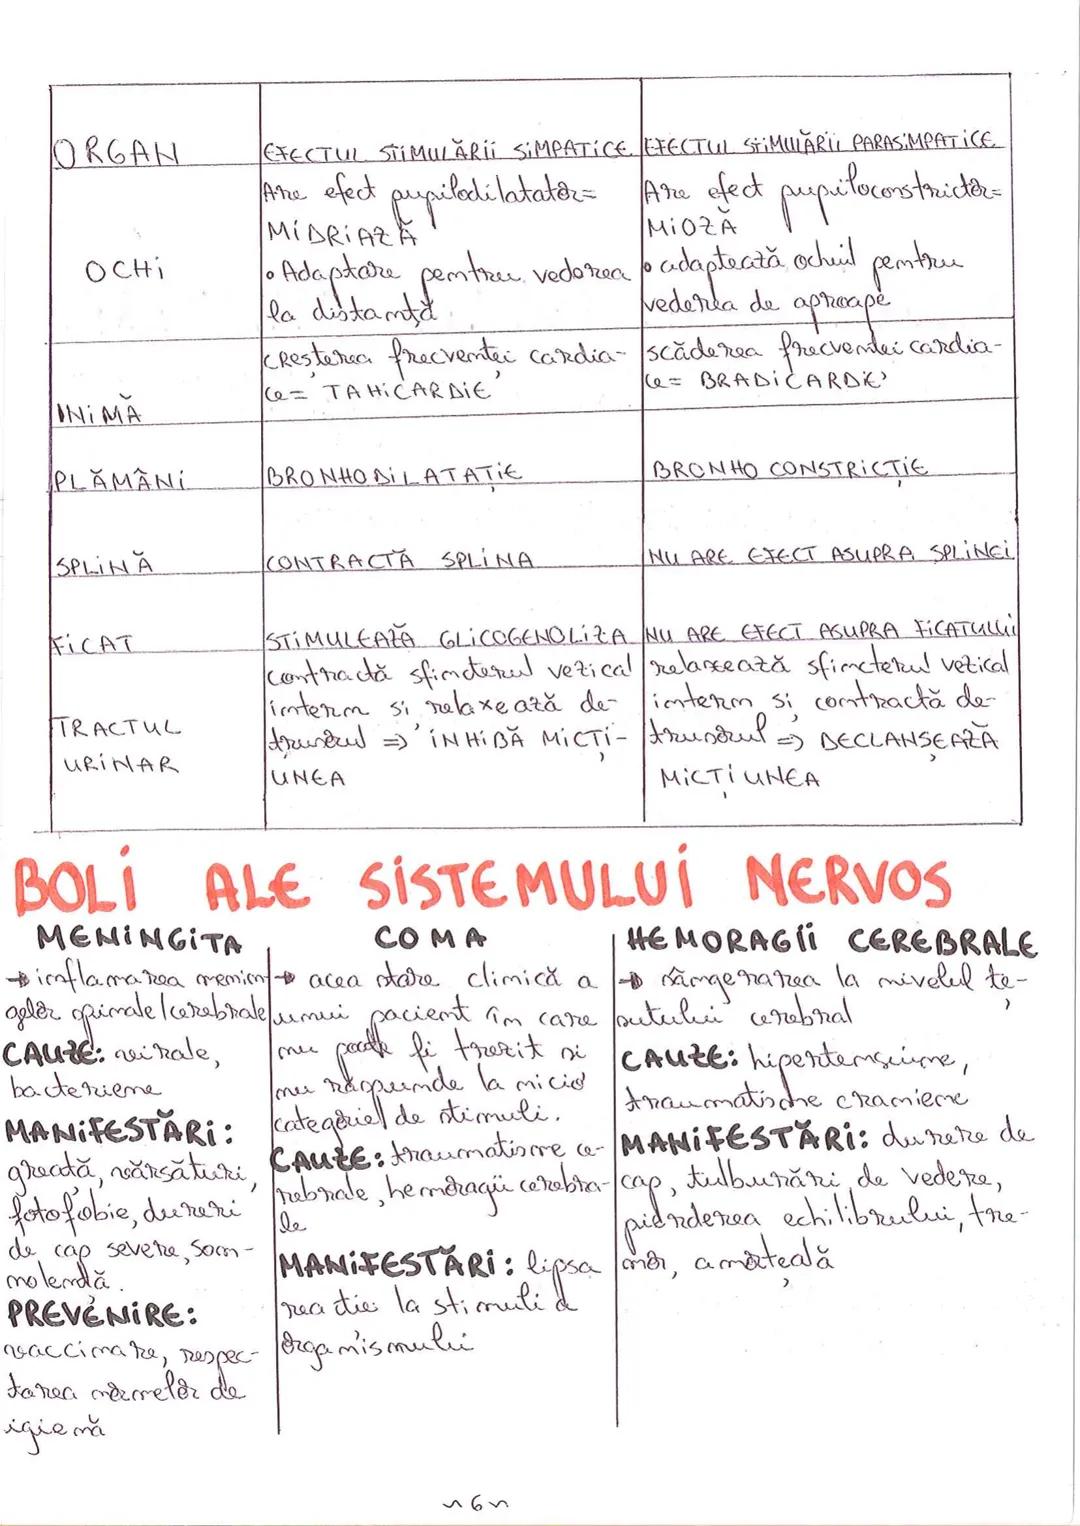 ORGAN
EFECTUL STIMULĂRII SIMPATICE
EFECTUL STIMULĂRII PARASIMPATICE
OCHI
Are efect pupilodilatator=
MIDRIAZĂ
• Adaptare pentru vederea
la distanță
Are efect pupiloconstrictor=
MIOZĂ
• adaptează ochiul pentru
vederea de aproape
INIMĂ
creșterea frecvenței cardia-
ce= TAHICARDIE
scăderea frecvenței cardia-
ce= BRADICARDIE
PLĂMÂNI
BRONHODILATAȚIE
BRONHO CONSTRICȚIE
SPLINĂ
CONTRACTĂ SPLINA
NU ARE EFECT ASUPRA SPLINEI
FICAT
STIMULEAZĂ GLICOGENOLIZA
NU ARE EFECT ASUPRA FICATULUI
TRACTUL
URINAR
contractă sfincterul vezical
intern și relaxează de-
trusorul => INHIBĂ MICȚI-
UNEA
relaxează sfincterul vezical
intern și contractă de-
trusorul => DECLANȘEAZĂ
MICȚIUNEA
BOLI ALE SISTEMULUI NERVOS
MENINGITA
→ inflamarea menin-
gelor spinale/cerebrale
CAUZE: virale,
bacteriene
MANIFESTĂRI:
greață, vărsături,
fotofobie, dureri
de cap severe, som-
nolență.
PREVENIRE:
vaccinare, respec-
tarea normelor de
igienă
COMA
→ acea stare clinică a
unui pacient în care
nu poate fi trezit și
nu răspunde la nicio
categorie de stimuli.
CAUZE: traumatisme ce-
rebrale, hemoragii cerebra-
le
MANIFESTĂRI: lipsa
reacție la stimuli a
organismului
HEMORAGII CEREBRALE
→ sângerarea la nivelul țe-
sutului cerebral
CAUZE: hipertensiune,
traumatisme craniene
MANIFESTĂRI: durere de
cap, tulburări de vedere,
pierderea echilibrului, tre-
mor, amorțeală
~6~